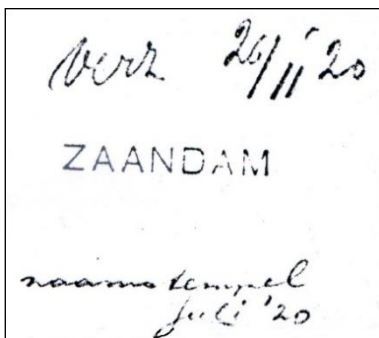 verz 26/II '20
ZAANDAM
naamstempel
juli '20